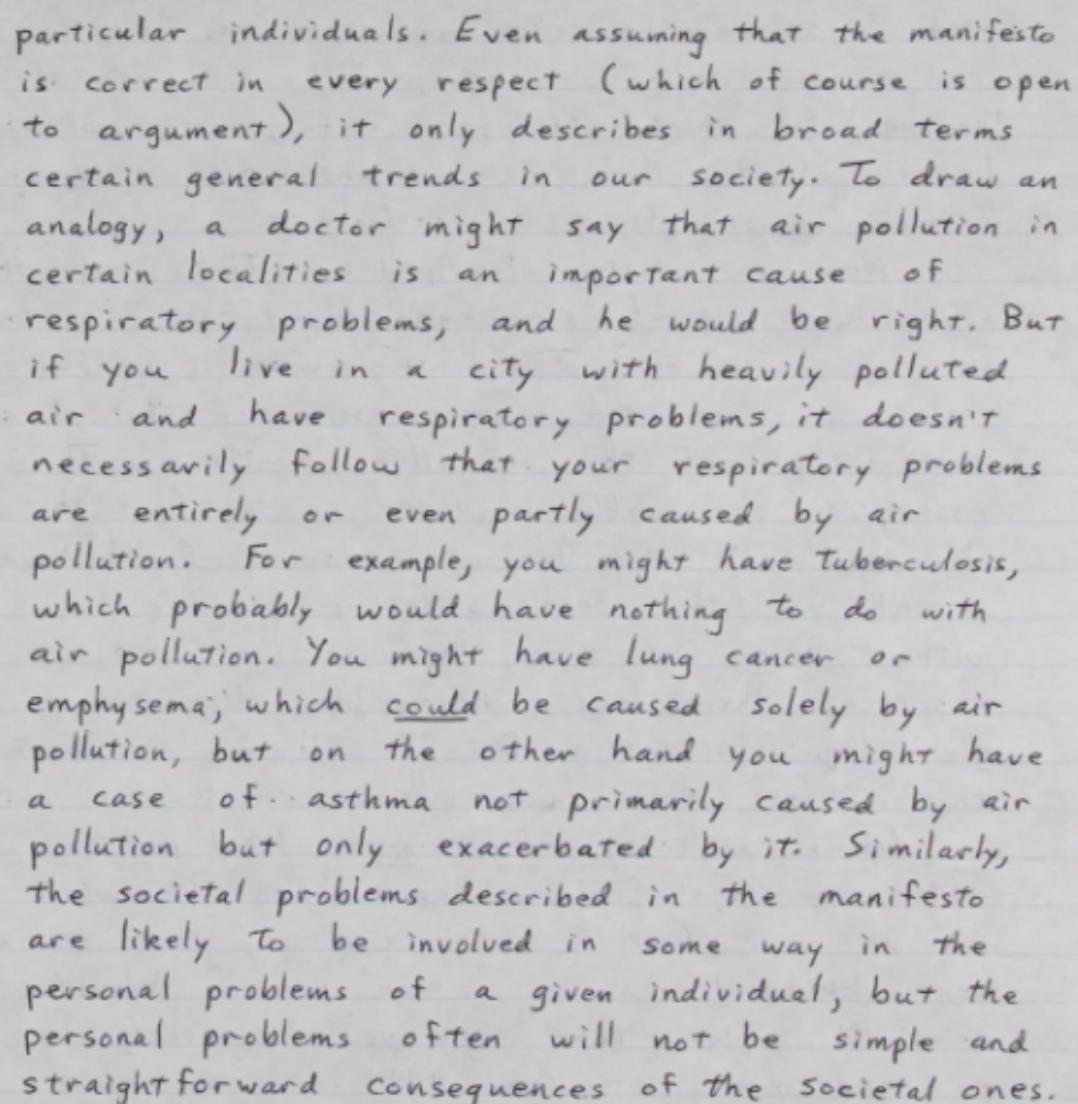 particular individuals. Even assuming that the manifesto
is correct in every respect (which of course is open
to argument), it only describes in broad terms
certain general trends in our society. To draw an
analogy, a doctor might say that air pollution in
certain localities is an important cause of
respiratory problems, and he would be right. But
if you live in a city with heavily polluted
air and have respiratory problems, it doesn't
necessarily follow that your respiratory problems
are entirely or even partly caused by air
pollution. For example, you might have Tuberculosis,
which probably would have nothing to do with
air pollution. You might have lung cancer or
emphysema, which could be caused solely by air
pollution, but on the other hand you might have
a case of asthma not primarily caused by air
pollution but only exacerbated by it. Similarly,
the societal problems described in the manifesto
are likely to be involved in some way in the
personal problems of a given individual, but the
personal problems often will not be simple and
straightforward consequences of the societal ones.